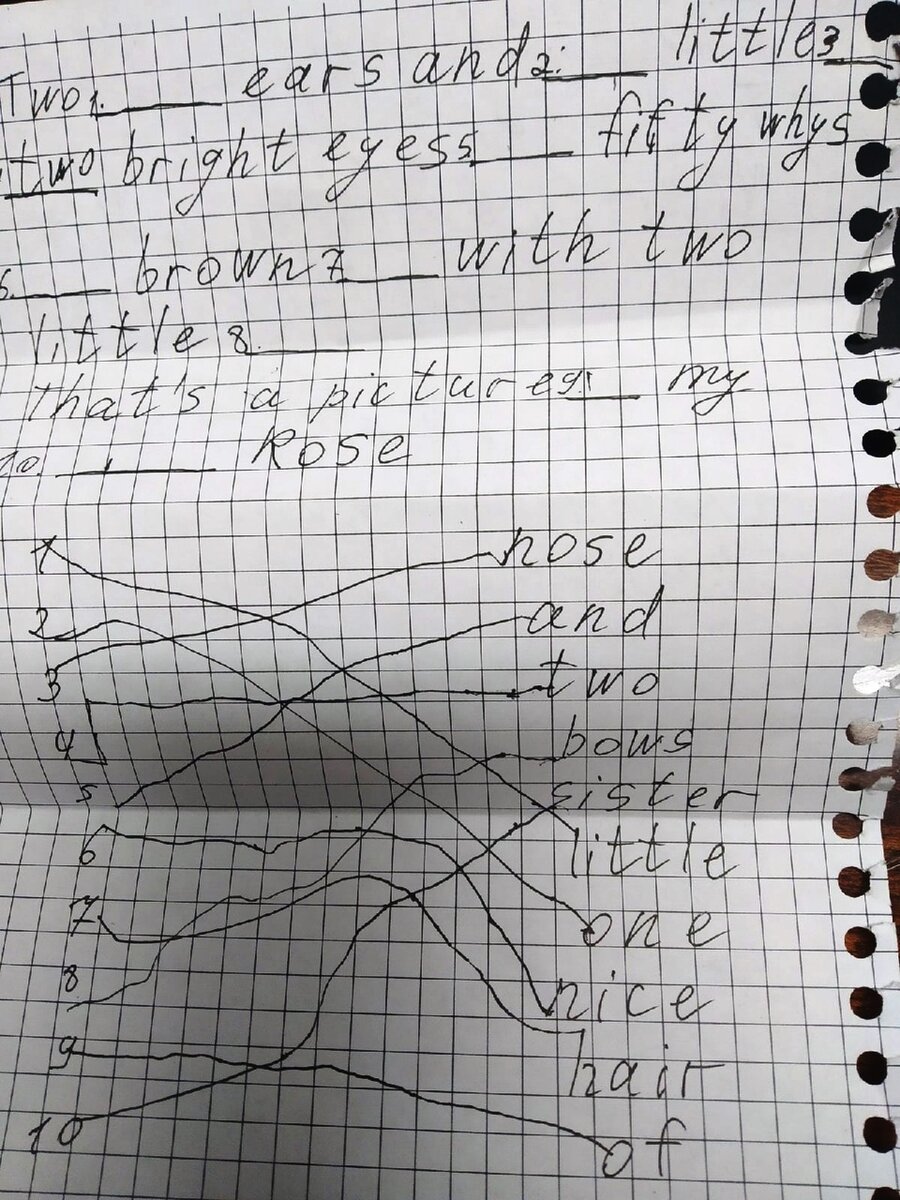 Two 1. ____ ears and 2. ____ little 3 ____
two bright eyes 5 ____ fifty whys
6. ____ brown 7 ____ with two
little 8 ____
That's a picture 9. ____ my
10 ____ Rose
1 nose
2 and
3 two
4 bows
5 sister
6 little
7 one
8 nice
9 hair
10 of